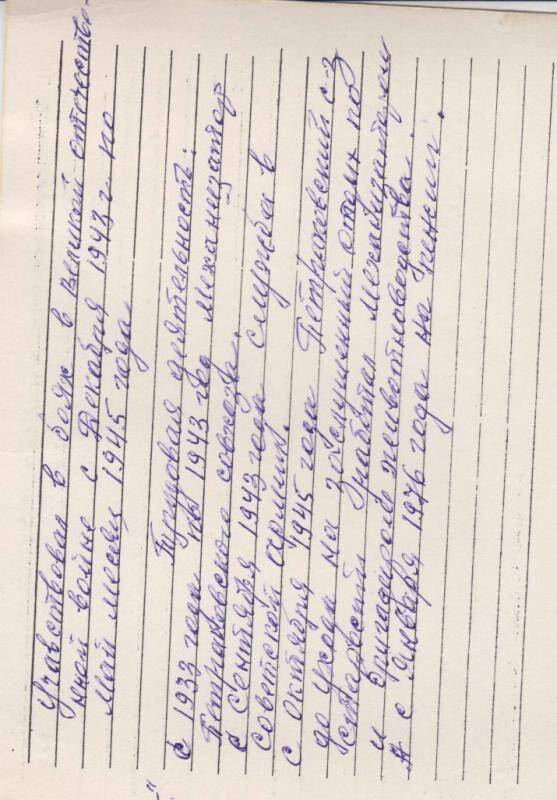 Учавствовал в боях в великой отечестве-
нной войне с Декабря 1943 г. по
Май месяц 1945 года
Трудовая деятельность:
С 1933 года по 1943 год механизатор
Петраковского совхоза.
С Сентября 1943 года служба в
советской армии.
с октября 1945 года Петраковский с-з
до ухода на заслуженный отдых по
старости работал механизатором
и бригадиром животноводства.
с Января 1976 года на пенсии.